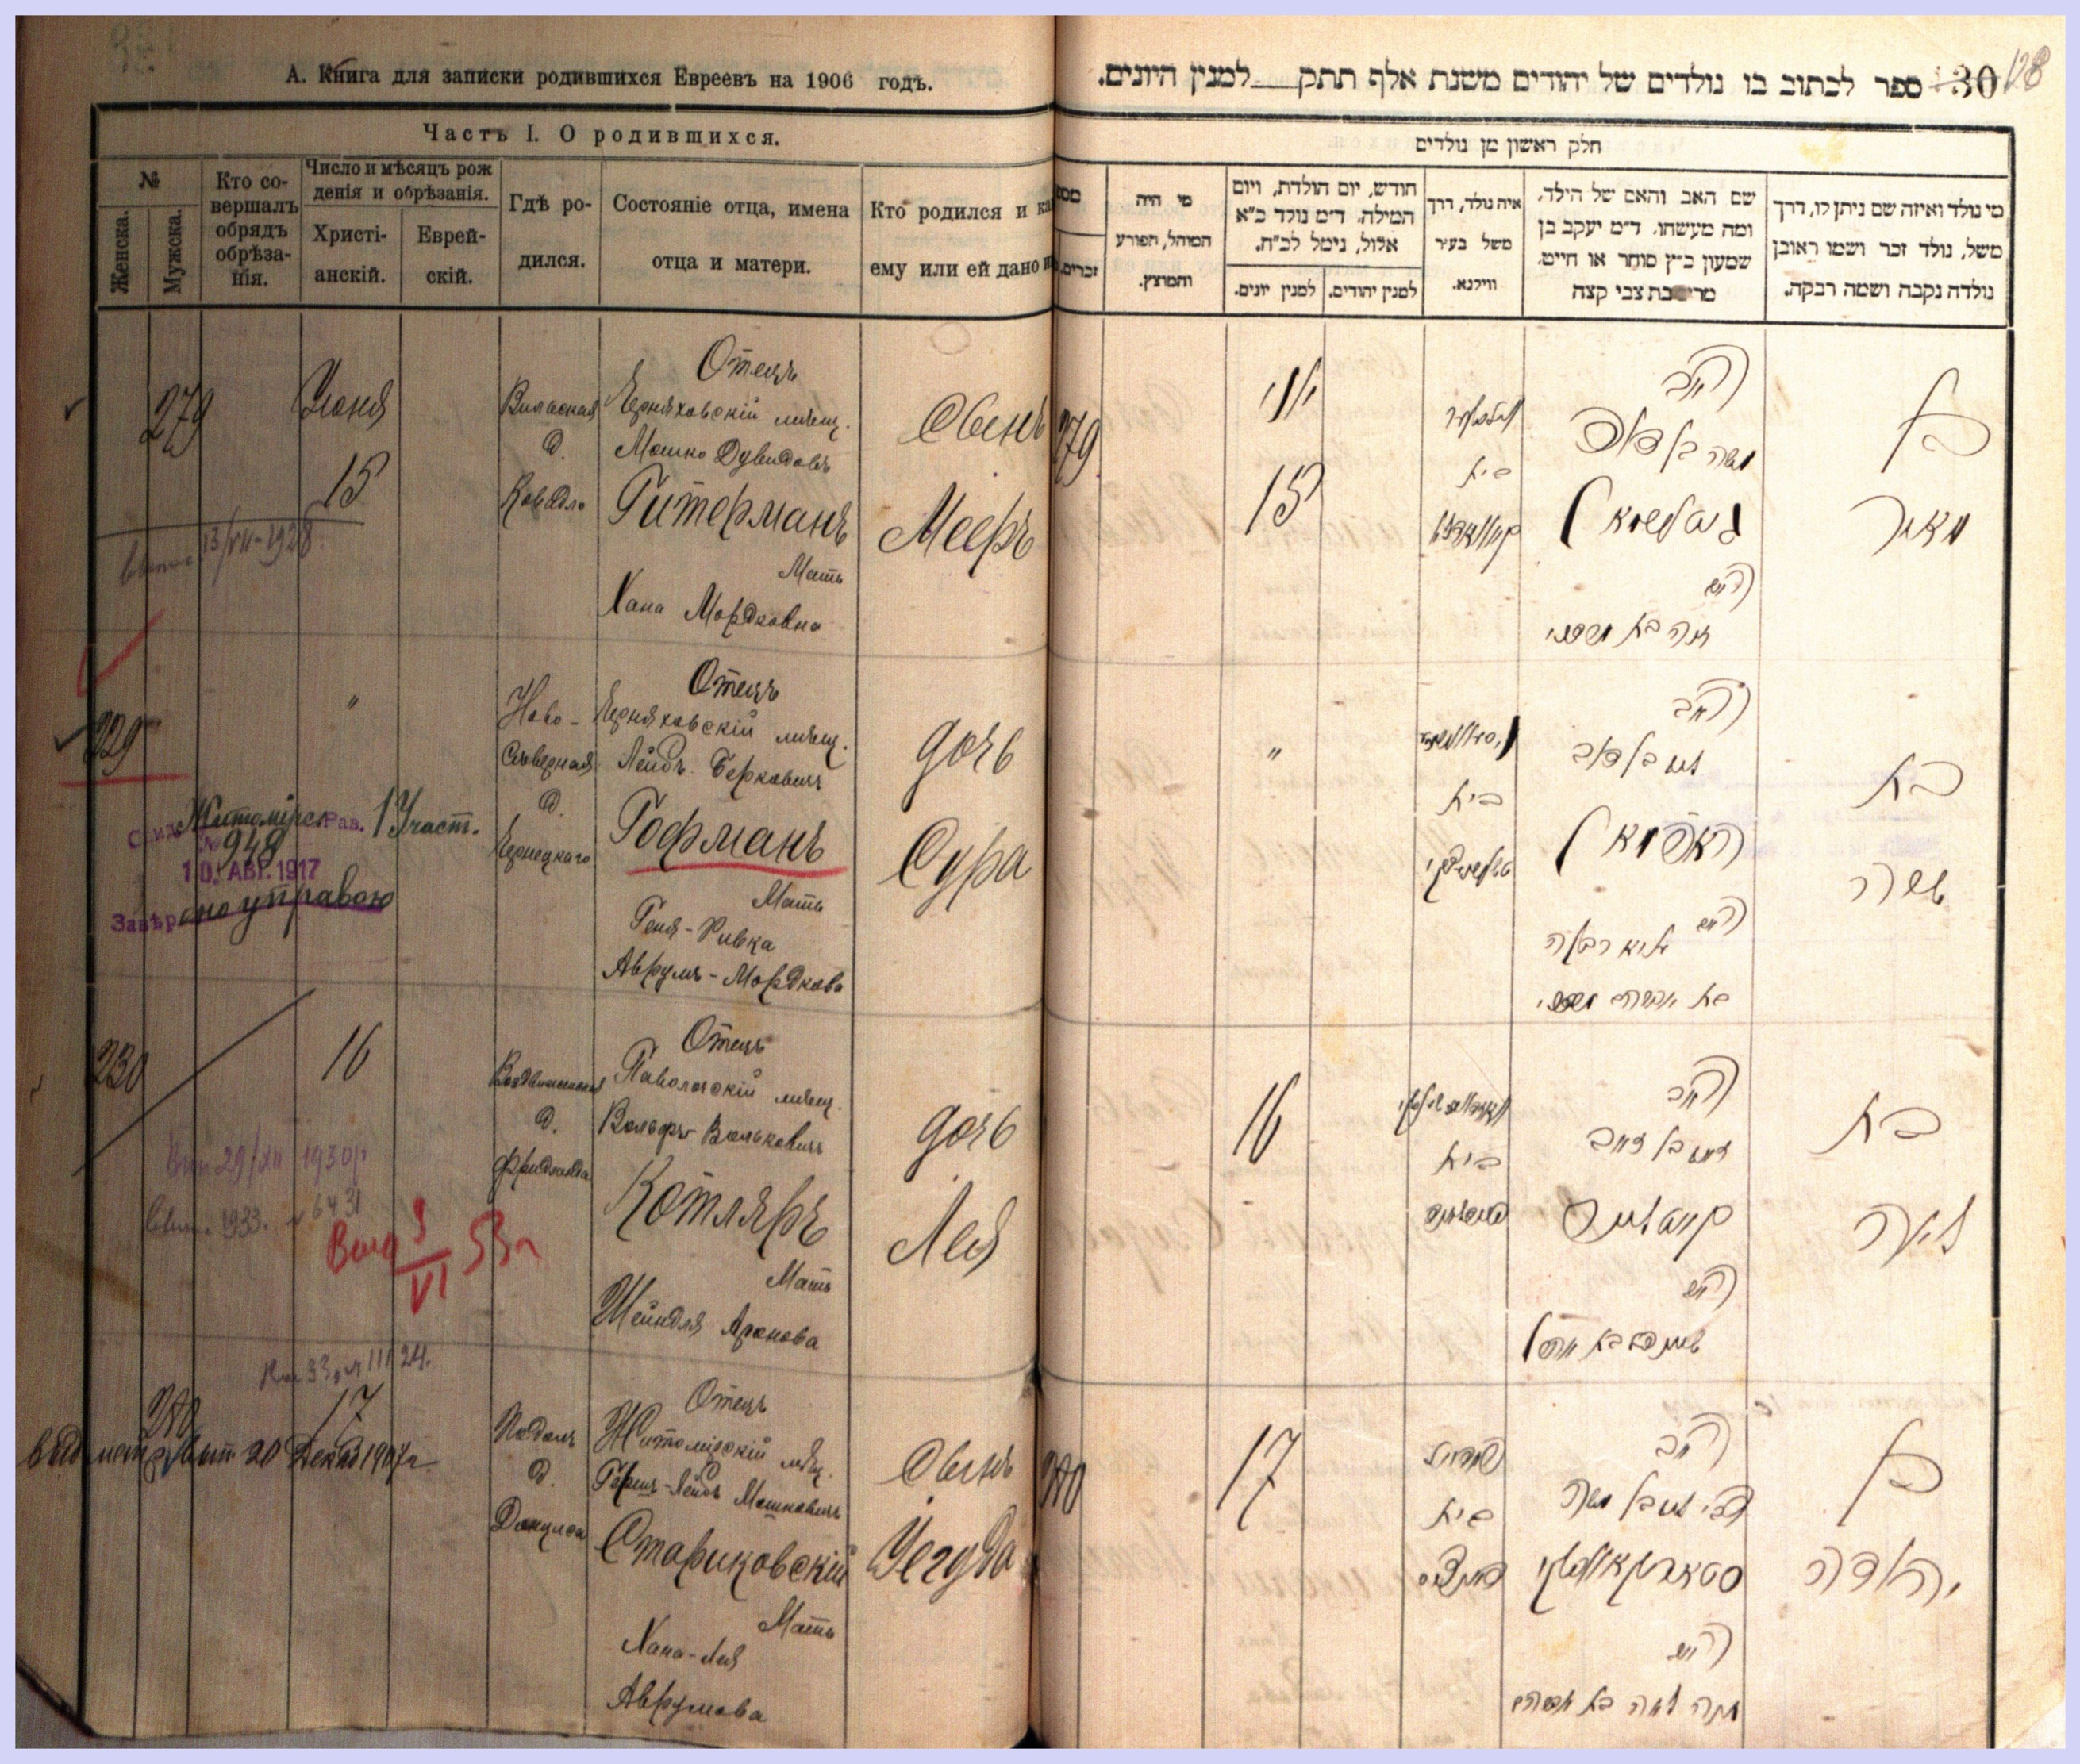 А. Книга для записки родившихся Евреевъ на 1906 годъ.
Часть I. О родившихся.
№
Женска.
Мужска.
Кто совершалъ обрядъ обрѣзанія.
Число и мѣсяцъ рожденія и обрѣзанія.
Христіанскій.
Еврейскій.
Гдѣ родился.
Состояніе отца, имена отца и матери.
Кто родился и ка
ему или ей дано и
279
Іюня
15
Вильская
д.
Отецъ
Черняховскій мѣщ.
Мошко Дувидовъ
Гитерманъ
Мать
Хана Мордковна
Сынъ
Мееръ
13/VII-1928
229
"
Ново-
Сѣверная
д.
Чернецкаго
Отецъ
Черняховскій мѣщ.
Лейбъ Берковичъ
Гофманъ
Мать
Геня-Ривка
Аврумъ-Мордкова
дочь
Сура
Житомірск Рав. 1 Участ.
№ 948
10. АВГ. 1917
управою
230
16
д.
Фридланда
Отецъ
Паволочскій мѣщ.
Вольфъ Вольковичъ
Котляръ
Мать
Шейндля Аронова
дочь
Лея
29/XII 1930г
1933. 6431
Выд 3/VI 53г
III 24.
280
17
20 Декаб 1907г.
Подол
д.
Отецъ
Житомірскій мѣщ.
Гершъ-Лейбъ Мошковичъ
Стариковскій
Мать
Хана-Лея
Аврумова
Сынъ
Іегуда
30 ספר לכתוב בו נולדים של יהודים משנת אלף תתק למנין היונים.
128
חלק ראשון מן נולדים
מספ
זכרים
מי היה
המוהל, הפורע
והמוצץ.
חודש, יום הולדת, ויום
המילה. ד״מ נולד כ״א
אלול, נימל לכ״ח.
למנין יונים.
למנין יהודים.
איה נולד, דרך
משל בעיר
ווילנא.
שם האב והאם של הילד,
ומה מעשהו. ד״מ יעקב בן
שמעון כ״ץ סוחר או חייט,
מרים בת צבי קצה
מי נולד ואיזה שם ניתן לו, דרך
משל, נולד זכר ושמו ראובן
נולדה נקבה ושמה רבקה.
279
יוני
15
בית
האב
משה בן דוד
גיטערמאן
האם
חנה בת מרדכי
בן
מאיר
"
בית
האב
האפמאן
האם
בת אברהם מרדכי
בת
שרה
16
בית
האב
זאב בן זאב
האם
בת
לאה
280
17
בית
האב
צבי ליב בן משה
סטאריקאווסקי
האם
חנה לאה בת אברהם
בן
יהודה